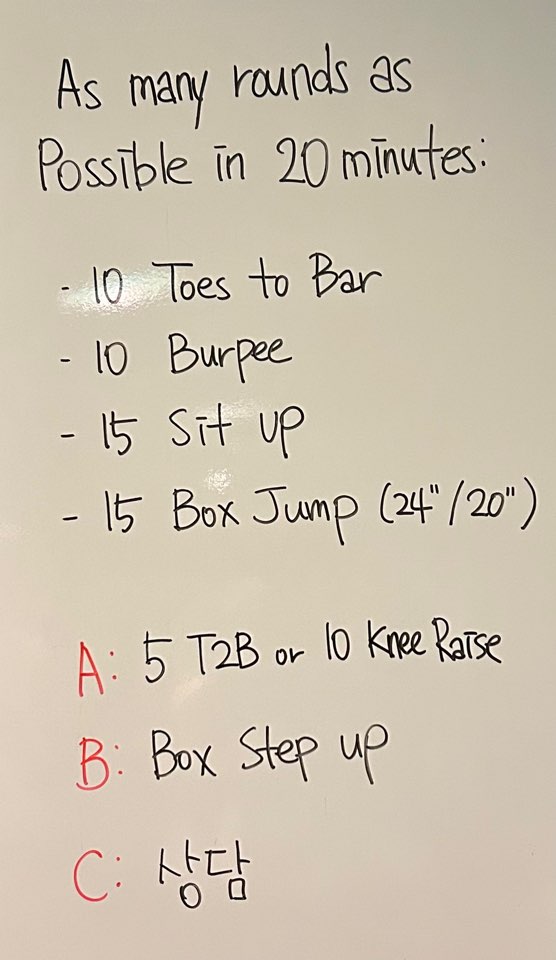 As many rounds as
Possible in 20 minutes:
- 10 Toes to Bar
- 10 Burpee
- 15 Sit up
- 15 Box Jump (24"/20")
A: 5 T2B or 10 Knee Raise
B: Box Step up
C: 상담